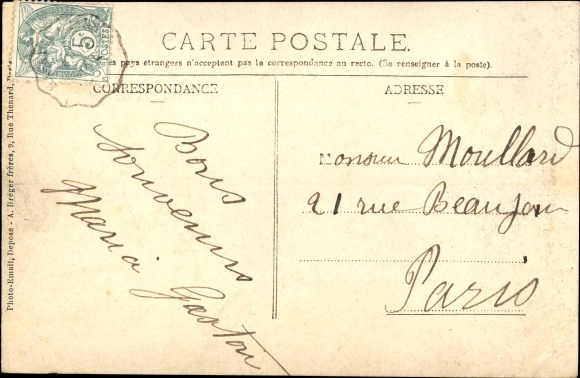 CARTE POSTALE.
es pays étrangers n'acceptent pas la correspondance au recto. (Se renseigner à la poste).
CORRESPONDANCE
ADRESSE
5c
POSTES
Photo-Email, Depose - A. Bréger frères, 9, Rue Thenard, Paris
Bons
souvenirs
Maria Gaston
Monsieur Moullard
21 rue Beaujon
Paris